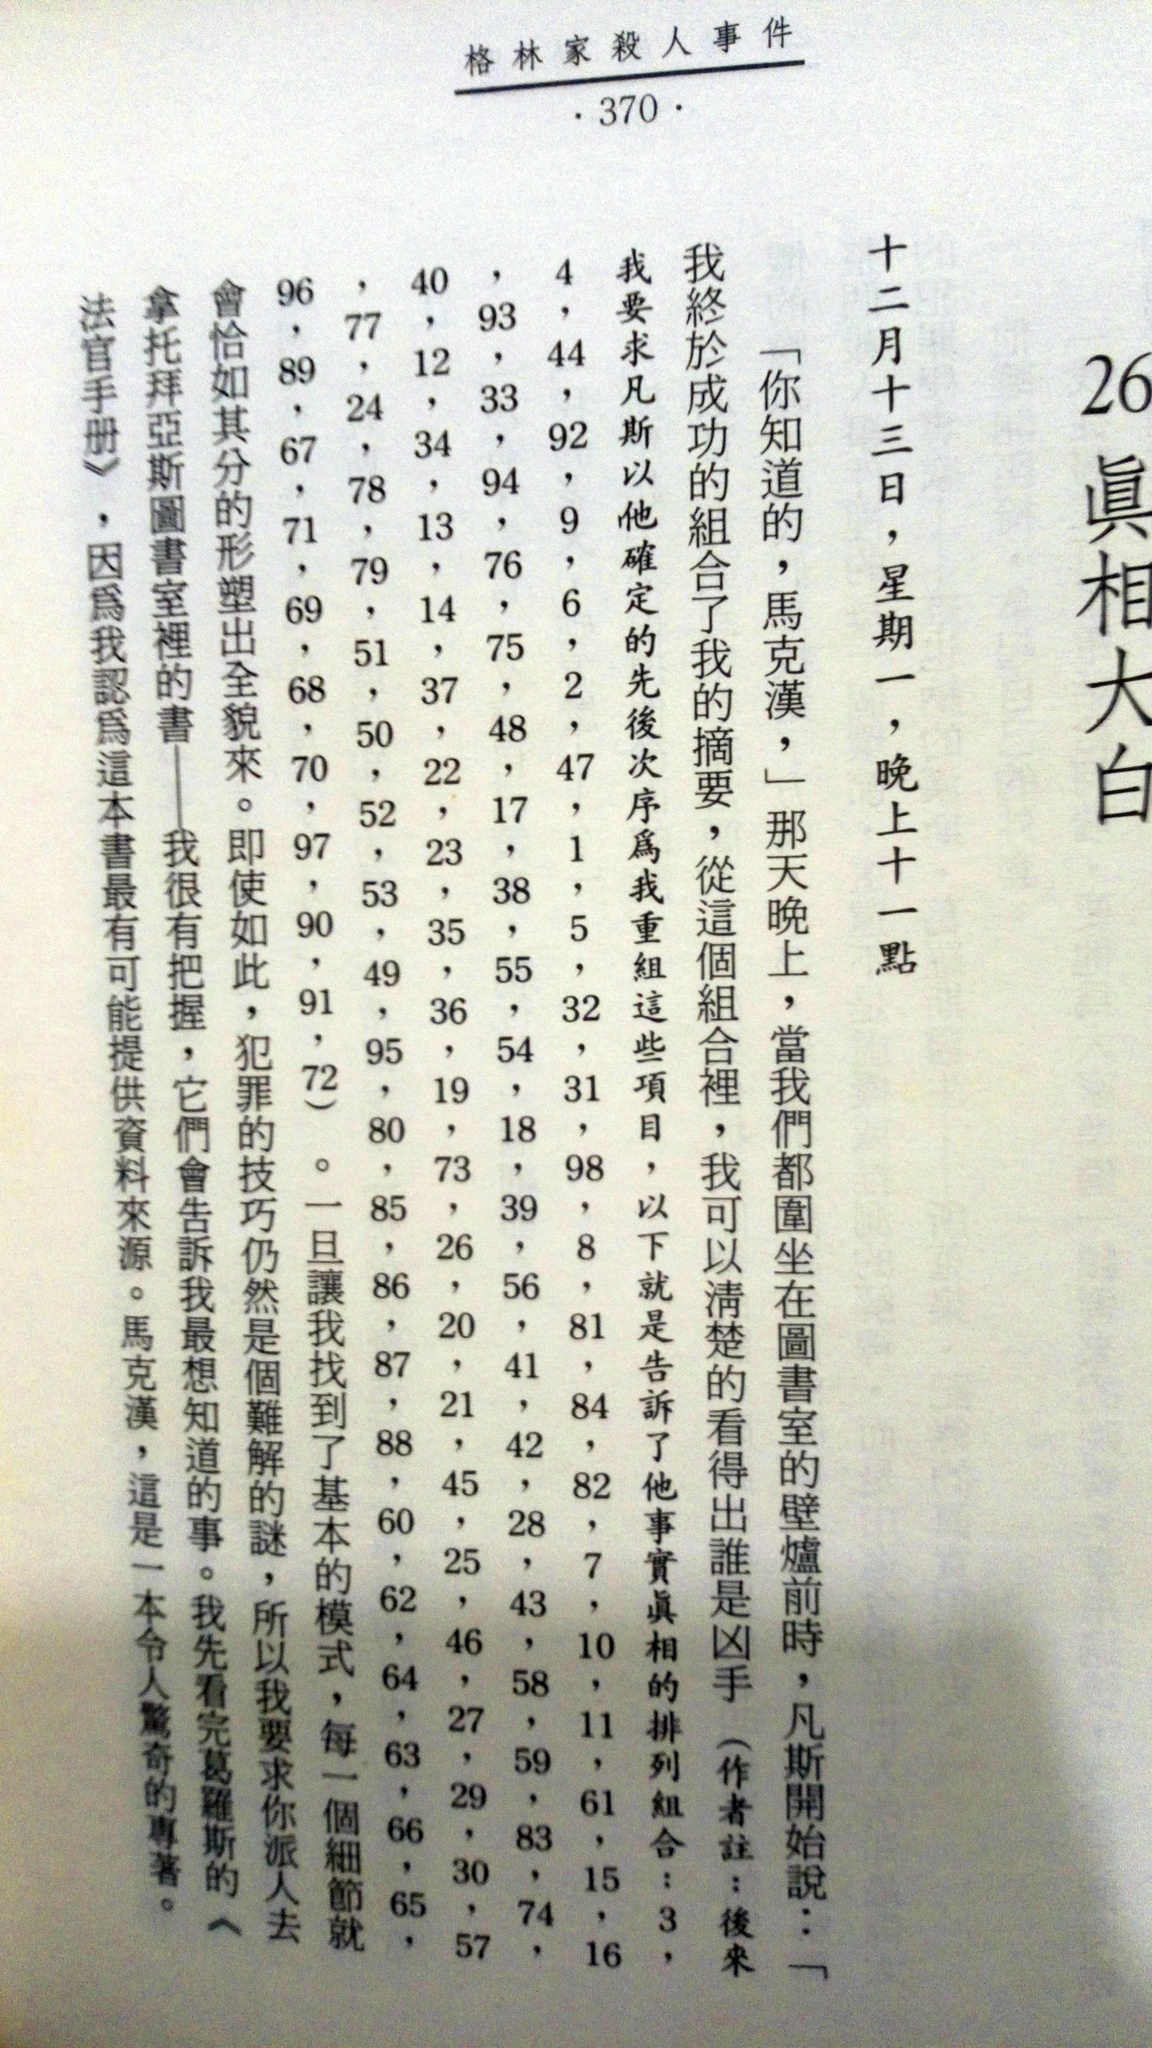 格林家殺人事件
·370·
26眞相大白
十二月十三日，星期一，晚上十一點
「你知道的，馬克漢，」那天晚上，當我們都圍坐在圖書室的壁爐前時，凡斯開始說：「
我終於成功的組合了我的摘要，從這個組合裡，我可以清楚的看得出誰是凶手（作者註：後來
我要求凡斯以他確定的先後次序爲我重組這些項目，以下就是告訴了他事實眞相的排列組合：3，
4，44，92，9，6，2，47，1，5，32，31，98，8，81，84，82，7，10，11，61，15，16
，93，33，94，76，75，48，17，38，55，54，18，39，56，41，42，28，43，58，59，83，74，
40，12，34，13，14，37，22，23，35，36，19，73，26，20，21，45，25，46，27，29，30，57
，77，24，78，79，51，50，52，53，49，95，80，85，86，87，88，60，62，64，63，66，65，
96，89，67，71，69，68，70，97，90，91，72）。一旦讓我找到了基本的模式，每一個細節就
會恰如其分的形塑出全貌來。即使如此，犯罪的技巧仍然是個難解的謎，所以我要求你派人去
拿托拜亞斯圖書室裡的書——我很有把握，它們會告訴我最想知道的事。我先看完葛羅斯的《
法官手册》，因爲我認爲這本書最有可能提供資料來源。馬克漢，這是一本令人驚奇的專著。